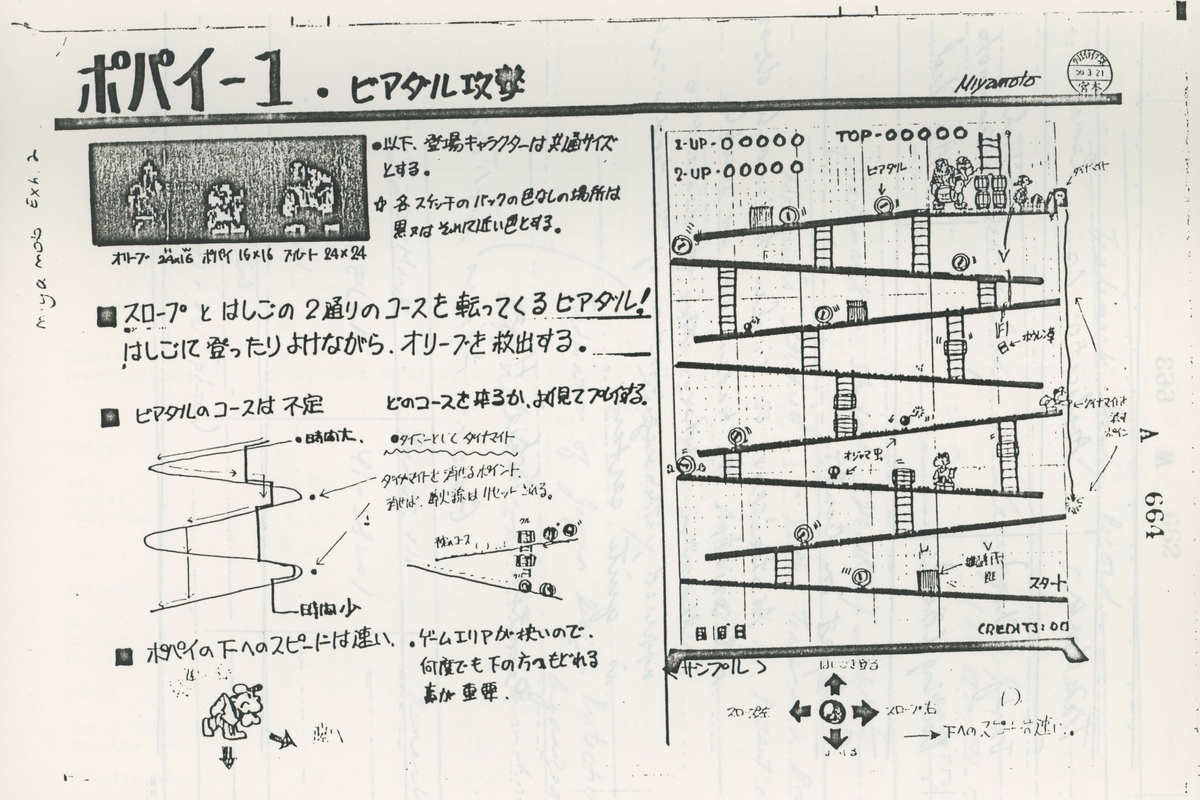 ポパイ-1・ビアダル攻撃
Miyamoto
宮本
miyamoto Exh 2
オリーブ 24x16 ポパイ 16x16 ブルート 24x24
●以下、登場キャラクターは共通サイズ
とする。
☆ 各スケッチのバックの色なしの場所は
黒又はそれに近い色とする。
■ スロープとはしごの2通りのコースを転ってくるビアダル!
はしごに登ったりよけながら、オリーブを救出する。
■ ビアダルのコースは不定
どのコースを来るか、よく見てプレイする。
●時間大.
●タイマーとして ダイナマイト
ダイナマイトを消せるポイント.
消せば、導火線はリセットされる。
時間少
■ ポパイの下へのスピードは速い.
●ゲームエリアが狭いので、
何度でも下の方へもどれる
事が重要.
速い
1-UP-00000
TOP-00000
2-UP-00000
ビアダル
ダイナマイト
ホウレン草
ダイナマイトを
消す
ポイント
オジャマ虫
スタート
CREDITS:00
サンプル
はしごを登る
スロープ左
スロープ右
下へのスピードは速い.
A 664